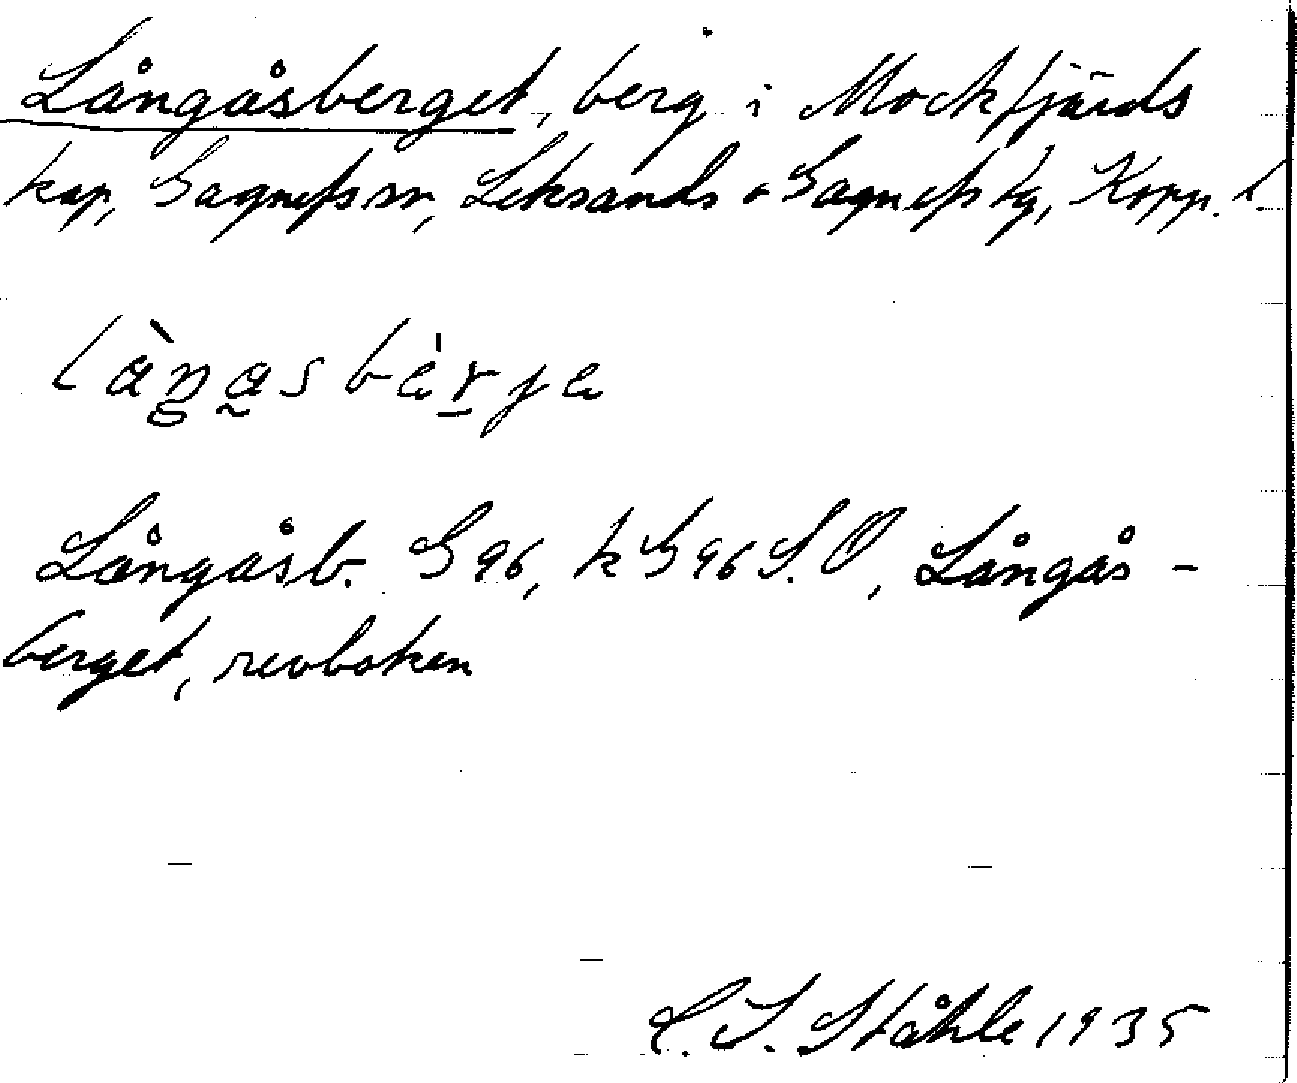 Långåsberget, berg i Mockfjärds
kap, Gagnefs sn, Leksands o Gagnefs tg, Kopp. l.
làŋasbærje
Långåsb. G 96, k G 96 S.O, Långås-
berget, revboken
C. I. Ståhle 1935